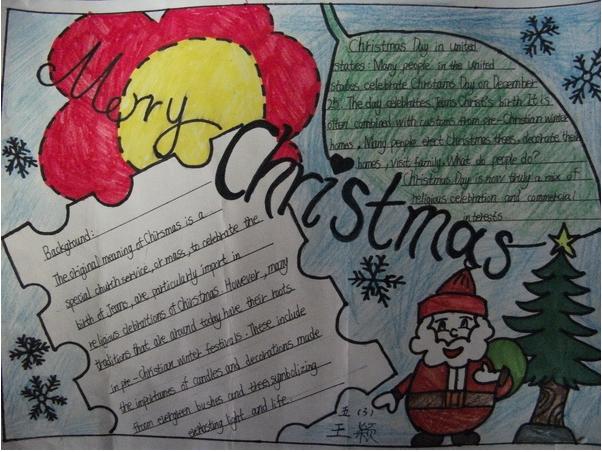 Merry
Christmas
Christmas Day in United
states: Many people in the United
states celebrate Christams Day on December
25. The day celebrates Jeans Christ's birth It is
often combined with customs from pre-Christian winter
homes, Many people erect Christmas trees, decorate their
homes, visit family. What do people do?
Christmas Day is now truly a mix of
religious celebration and commercial
interests
Background:
The original meaning of Chirsmas is a
special church service, or mass, to celebrate the
birth of Jeans, are particularly imprint in
religious celebritions of Christmas. However, many
traditions that are around today have their roots
in pre-Christian winter festivals. These include
the importances of candles and decorations made
from evergreen bushes and trees symbolizing
everlasting light and life
五(3)
王颖